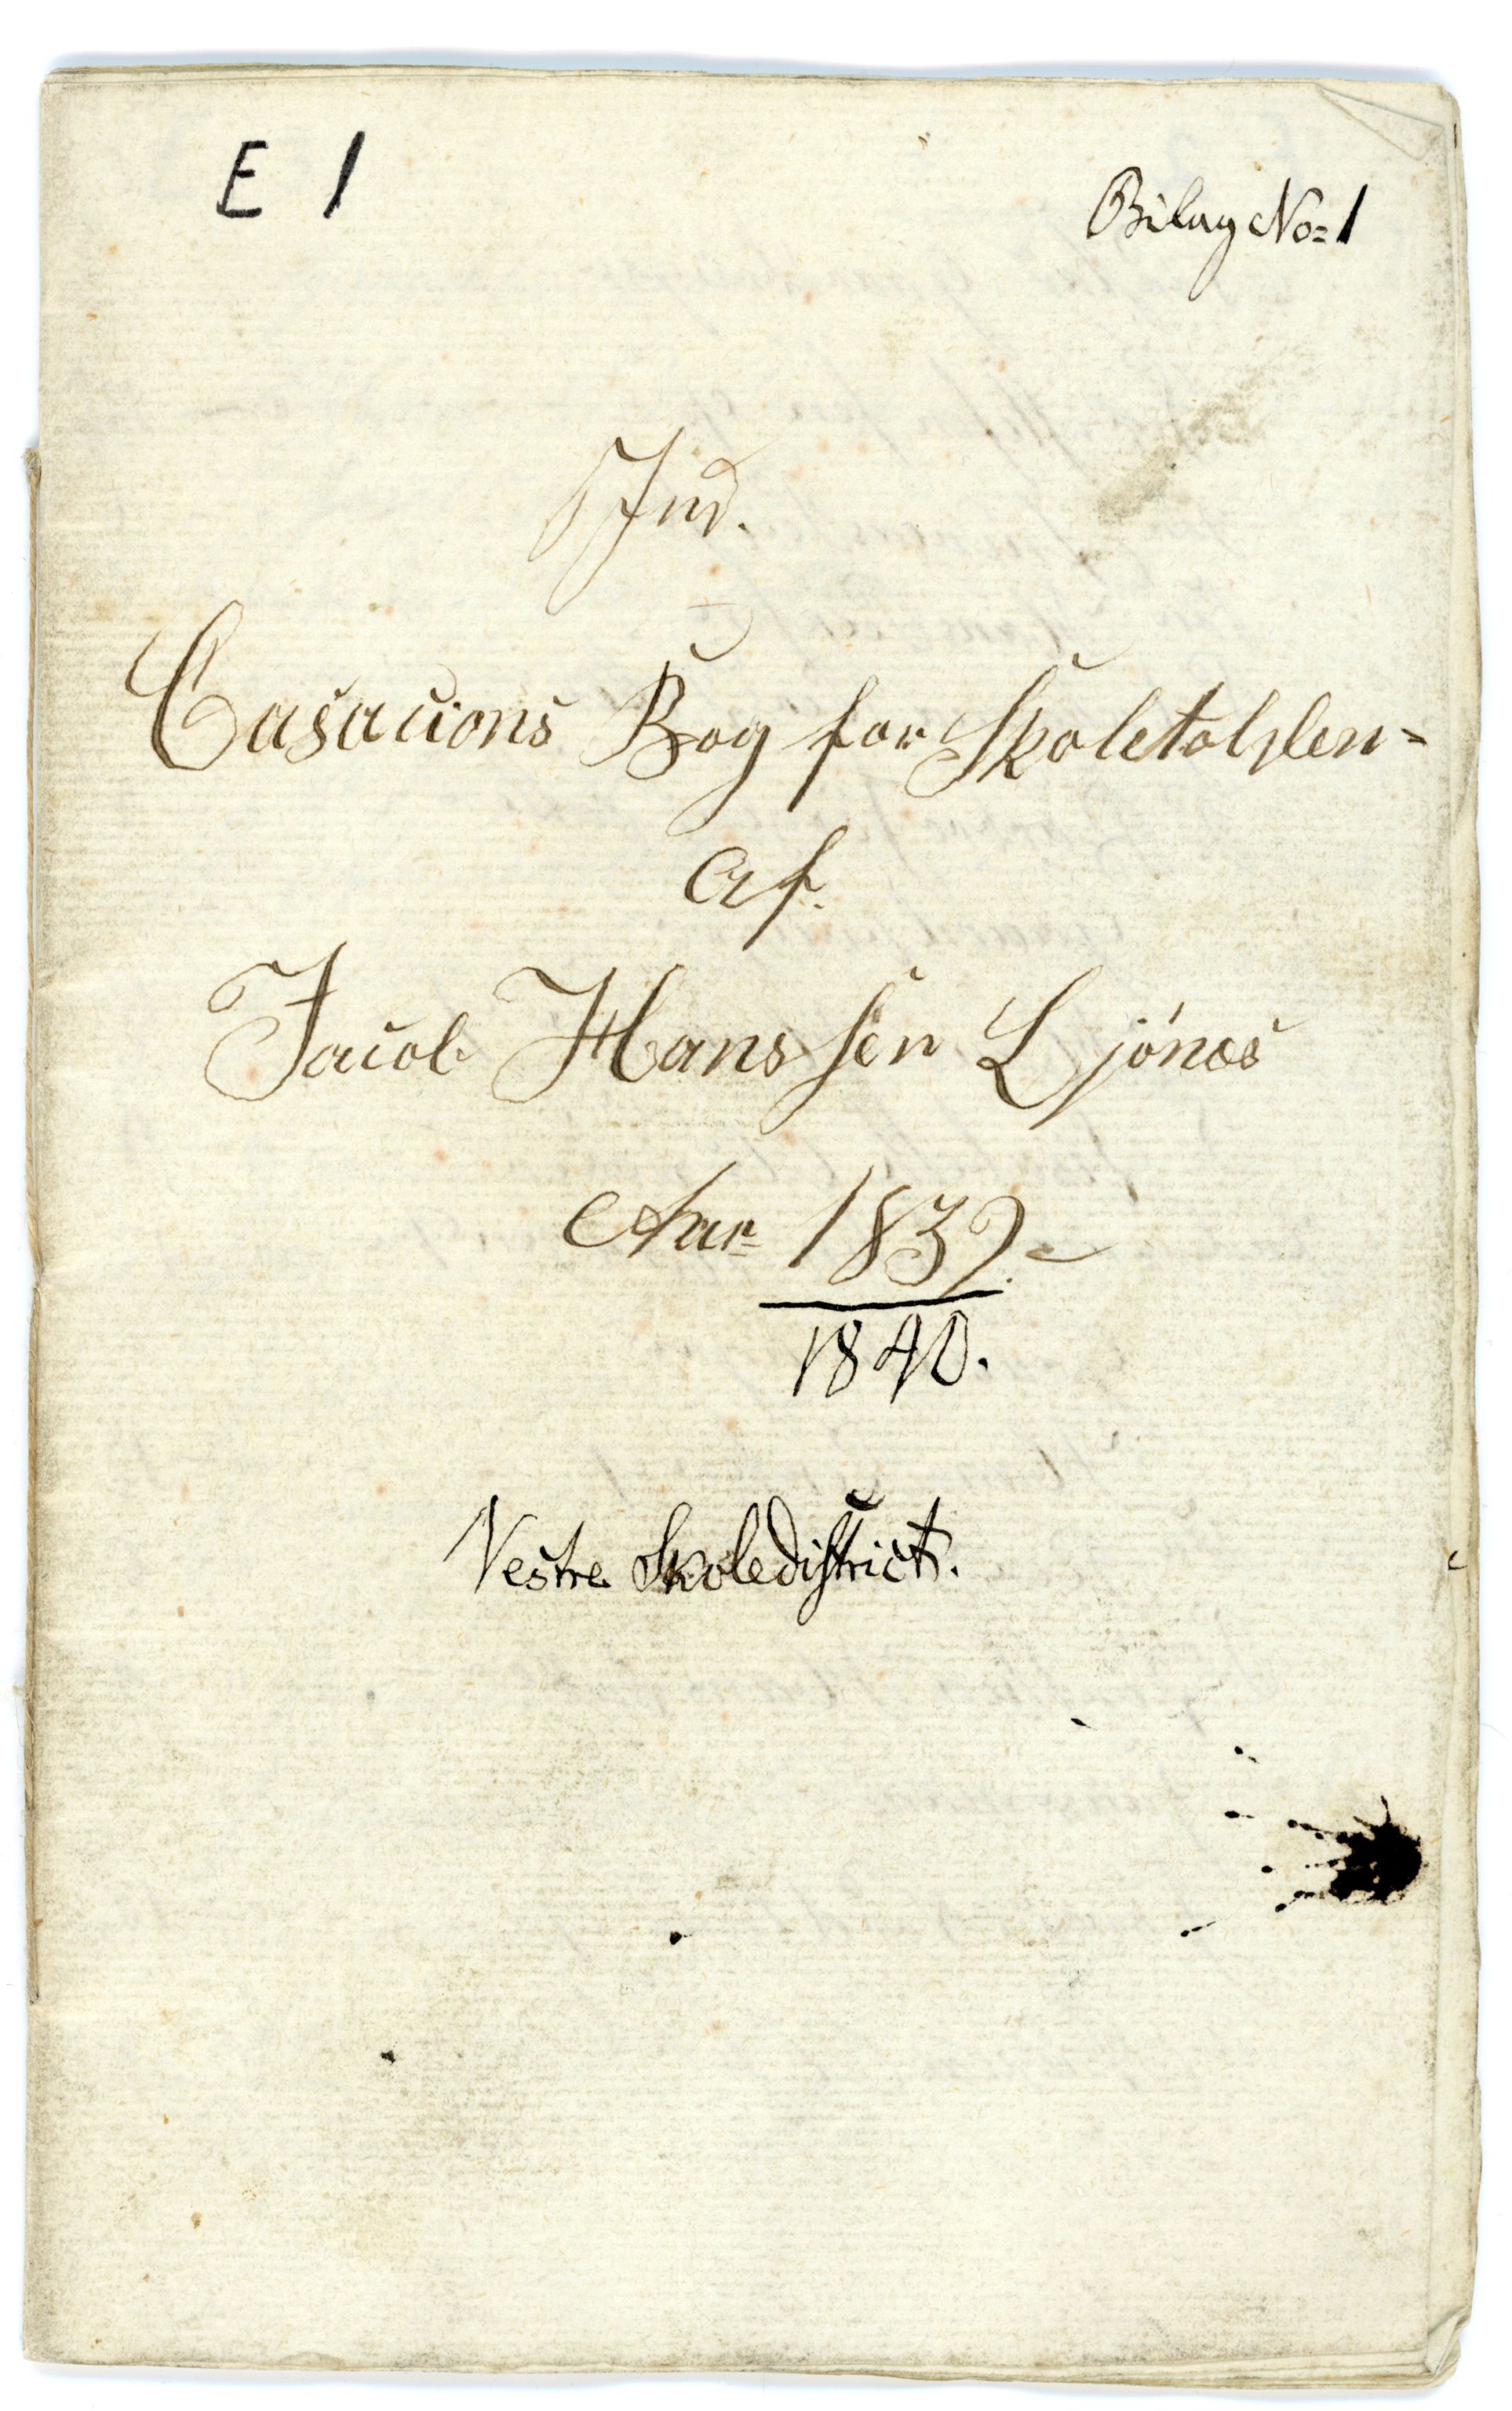 E 1
Bilag No= 1
Ind.
Casacions Bog for Skoletolden=
Af.
Jacob Hanssen Ljónæs
Aar= 1832.
1840.
Vestre Skoledistrict.